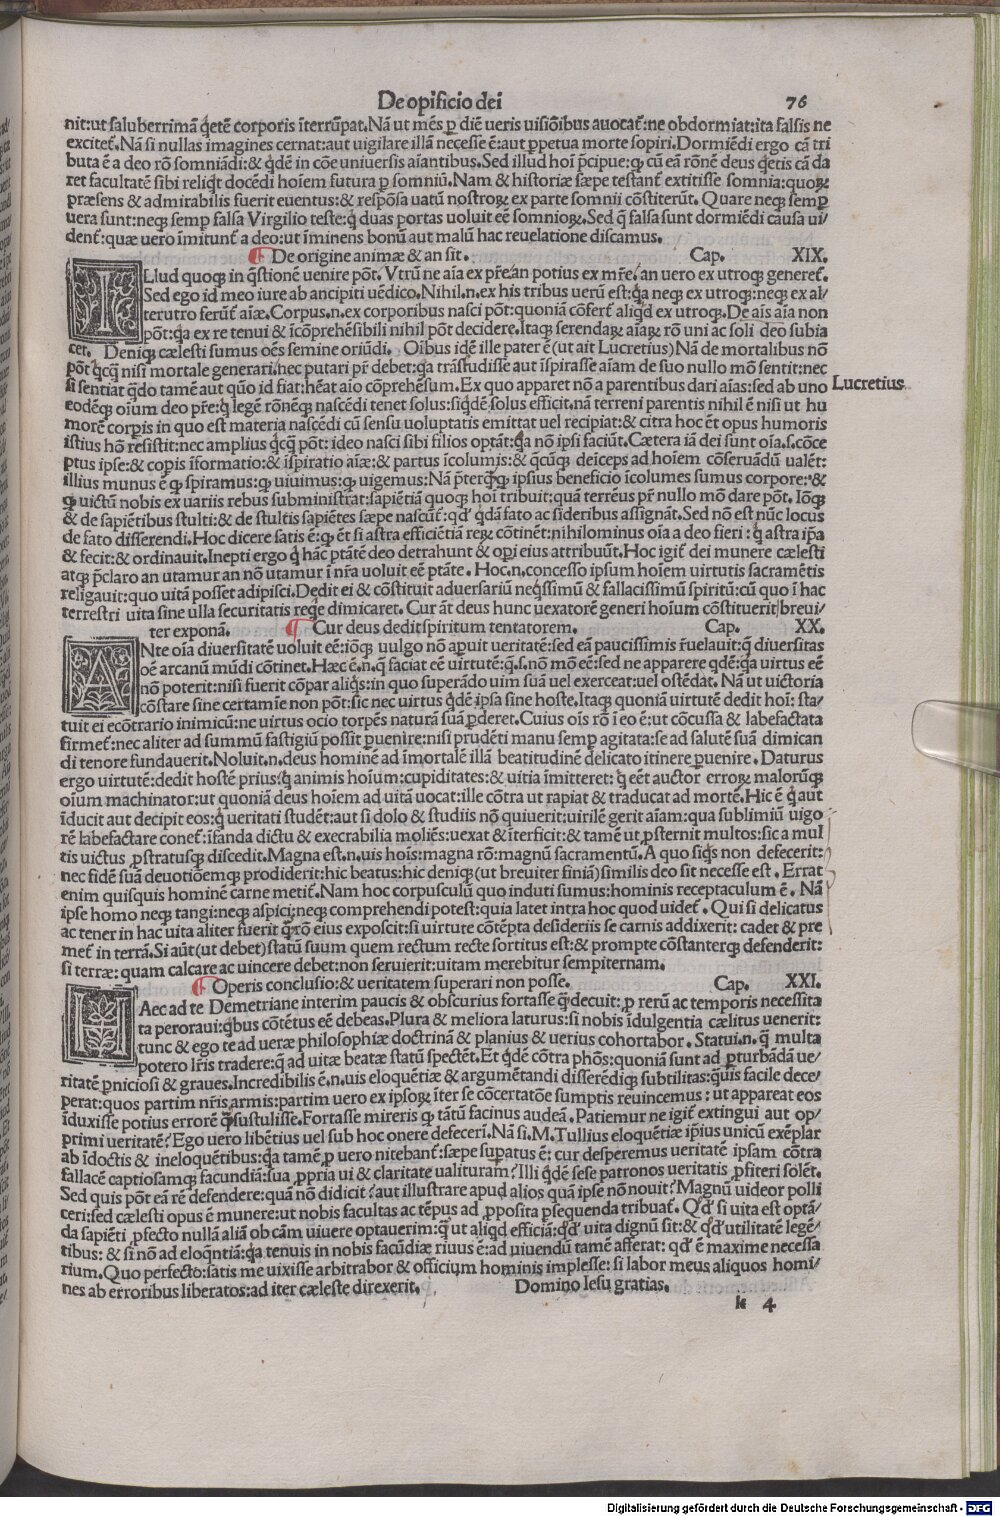 De opificio dei 76
nit:ut saluberrimā q̇etē corporis īterrūpat.Nā ut mēs ꝑ diē ueris uisiōibus auocat᷑:ne obdormiat:ita falsis ne
excitet᷑.Nā si nullas imagines cernat:aut uigilare illā necesse ē:aut ꝑpetua morte sopiri.Dormiēdi ergo cā tri
buta ē a deo rō somniādi:& q̇dē in cōe uniuersis aīantibus.Sed illud hoī p̄cipue:ꝙ cū eā rōnē deus q̇etis cā da
ret facultatē sibi reliq̇t docēdi hoīem futura ꝑ somniū.Nam & historiæ sæpe testant᷑ extitisse somnia:quoꝝ
præsens & admirabilis fuerit euentus:& respōsa uatū nostroꝝ ex parte somnii cōstiterūt. Quare neqꝫ semꝑ
uera sunt:neqꝫ semꝑ falsa Virgilio teste:q̇ duas portas uoluit eē somnioꝝ.Sed q̄ falsa sunt dormiēdi causa ui/
dent᷑:quæ uero īmitunt᷑ a deo:ut īminens bonū aut malū hac reuelatione discamus.
¶ De origine animæ & an sit. Cap. XIX.
ILlud quoqꝫ in q̄stionē uenire pōt. Vtrū ne aīa ex pr̄e/an potius ex mr̄e/ an uero ex utroqꝫ generet᷑.
Sed ego id meo iure ab ancipiti uēdico.Nihil.n.ex his tribus uerū est:q̇a neqꝫ ex utroqꝫ:neqꝫ ex al/
terutro ferūt᷑ aīæ.Corpus.n.ex corporibus nasci pōt:quoniā cōfert᷑ aliq̇d ex utroqꝫ.De aīs aīa non
pōt:q̇a ex re tenui & īcōprehēsibili nihil pōt decidere.Itaqꝫ serendaꝝ aīaꝝ rō uni ac soli deo subia
cet. Deniqꝫ cælesti sumus oēs semine oriūdi. Oibus idē ille pater ē (ut ait Lucretius) Nā de mortalibus nō
pōt q̇cq̄ nisi mortale generari.nec putari pr̄ debet:q̇a trāsfudisse aut īspirasse aīam de suo nullo mō sentit:nec
si sentiat q̄do tamē aut quō id fiat:hēat aīo cōprehēsum.Ex quo apparet nō a parentibus dari aīas:sed ab uno Lucretius
eodēqꝫ oīum deo pr̄e:q̇ legē rōnēqꝫ nascēdi tenet solus:siq̇dē solus efficit.nā terreni parentis nihil ē nisi ut hu
morē corꝑis in quo est materia nascēdi cū sensu uoluptatis emittat uel recipiat:& citra hoc ēt opus humoris
istius hō resistit:nec amplius q̇cq̄ pōt: ideo nasci sibi filios optāt:q̇a nō ipsi faciūt.Cætera iā dei sunt oīa.s.cōce
ptus ipse:& corꝑis īformatio:& īspiratio aīæ:& partus īcolumis:& q̄cūqꝫ deiceps ad hoīem cōseruādū ualēt:
illius munus ē ꝙ spiramus:ꝙ uiuimus:ꝙ uigemus:Nā p̄terq̄qꝫ ipsius beneficio īcolumes sumus corpore:&
ꝙ uictū nobis ex uariis rebus subministrat:sapiētiā quoqꝫ hoī tribuit:quā terrēus pr̄ nullo mō dare pōt. Iōqꝫ
& de sapiētibus stulti:& de stultis sapiētes sæpe nascūt᷑:qd᷑ q̇dā fato ac sideribus assignāt.Sed nō est nūc locus
de fato disserendi.Hoc dicere satis ē:ꝙ ēt si astra efficiētiā reꝝ cōtinēt:nihilominus oīa a deo fieri : q̇ astra ip̄a
& fecit:& ordinauit.Inepti ergo q̇ hāc ptātē deo detrahunt & oꝑi eius attribuūt.Hoc igit᷑ dei munere cælesti
atqꝫ p̄claro an utamur an nō utamur ī nr̄a uoluit eē ptāte. Hoc.n.concesso ipsum hoīem uirtutis sacramētis
religauit:quo uitā posset adipisci.Dedit ei & cōstituit aduersariū neq̇ssimū & fallacissimū spiritū:cū quo ī hac
terrestri uita sine ulla securitatis reqe dimicaret. Cur āt deus hunc uexatorē generi hoīum cōstituerit/breui/
ter exponā. ¶ Cur deus dedit spiritum tentatorem. Cap. XX.
ANte oīa diuersitatē uoluit eē:iōqꝫ uulgo nō aꝑuit ueritatē:sed eā paucissimis r̄uelauit:q̄ diuersitas
oē arcanū mūdi cōtinet.Hæc ē.n.q̄ faciat eē uirtutē:q̄.s.nō mō eē:sed ne apparere q̇dē:q̇a uirtus eē
nō poterit:nisi fuerit cōpar aliq̇s:in quo superādo uim suā uel exerceat:uel ostēdat. Nā ut uictoria
cōstare sine certamīe non pōt:sic nec uirtus q̇dē ipsa sine hoste.Itaqꝫ quoniā uirtutē dedit hoī: sta/
tuit ei ecōtrario inimicū:ne uirtus ocio torpēs naturā suā ꝑderet.Cuius oīs rō ī eo ē:ut cōcussa & labefactata
firmet᷑:nec aliter ad summū fastigiū possit ꝑuenire:nisi prudēti manu semꝑ agitata:se ad salutē suā dimican
di tenore fundauerit.Noluit.n.deus hominē ad īmortalē illā beatitudinē delicato itinere ꝑuenire. Daturus
ergo uirtutē:dedit hostē prius:q̇ animis hoīum:cupiditates:& uitia īmitteret: q̇ eēt auctor erroꝝ malorūqꝫ
oīum machinator:ut quoniā deus hoīem ad uitā uocat:ille cōtra ut rapiat & traducat ad mortē.Hic ē q̇ aut
īducit aut decipit eos:q̇ ueritati studēt:aut si dolo & studiis nō quiuerit:uirilē gerit aīam:qua sublimiū uigo
rē labefactare conet᷑:īfanda dictu & execrabilia moliēs:uexat & īterficit:& tamē ut ꝓsternit multos:sic a mul
tis uictus ꝓstratusqꝫ discedit.Magna est.n.uis hoīs:magna rō:magnū sacramentū.A quo siq̇s non defecerit:
nec fidē suā deuotiōemqꝫ prodiderit:hic beatus:hic deniqꝫ(ut breuiter finiā)similis deo sit necesse est. Errat
enim quisquis hominē carne metit᷑.Nam hoc corpusculū quo induti sumus:hominis receptaculum ē. Nā
ipse homo neqꝫ tangi:neqꝫ aspici:neqꝫ comprehendi potest:quia latet intra hoc quod uidet᷑. Qui si delicatus
ac tener in hac uita aliter fuerit q̄ rō eius exposcit:si uirtute cōtēpta desideriis se carnis addixerit: cadet & pre
met᷑ in terrā.Si aūt(ut debet)statū suum quem rectum recte sortitus est:& prompte cōstanterqꝫ defenderit:
si terræ: quam calcare ac uincere debet:non seruierit:uitam merebitur sempiternam.
¶ Operis conclusio:& ueritatem superari non posse. Cap. XXI.
HAec ad te Demetriane interim paucis & obscurius fortasse q̄ decuit: ꝓ rerū ac temporis necessita
ta peroraui:q̇bus cōtētus eē debeas.Plura & meliora laturus:si nobis īdulgentia cælitus uenerit:
tunc & ego te ad ueræ philosophiæ doctrinā & planius & uerius cohortabor. Statui.n. q̄ multa
potero lr̄is tradere:q̄ ad uitæ beatæ statū spectēt.Et q̇dē cōtra phōs:quoniā sunt ad ꝑturbādā ue/
ritatē ꝑniciosi & graues.Incredibilis ē.n.uis eloquētiæ & argumētandi disserēdiqꝫ subtilitas:q̄uis facile dece/
perat:quos partim nr̄is armis:partim uero ex ipsoꝝ īter se cōcertatōe sumptis reuincemus : ut appareat eos
īduxisse potius errorē q̄ sustulisse.Fortasse mireris ꝙ tātū facinus audeā.Patiemur ne igit᷑ extingui aut op/
primi ueritatē? Ego uero libētius uel sub hoc onere defecerī.Nā si.M.Tullius eloquētiæ ip̄ius unicū exēplar
ab īdoctis & ineloquētibus:q̇a tamē ꝓ uero nitebant᷑:sæpe suꝑatus ē: cur desperemus ueritatē ipsam cōtra
fallacē captiosamqꝫ facundiā:sua ꝓpria ui & claritate ualituram? Illi q̇dē sese patronos ueritatis ꝓfiteri solēt.
Sed quis pōt eā rē defendere:quā nō didicit? aut illustrare apud alios quā ipse nō nouit? Magnū uideor polli
ceri:sed cælesti opus ē munere:ut nobis facultas ac tēpus ad ꝓposita ꝑsequenda tribuat᷑. Qd᷑ si uita est optā/
da sapiēti ꝓfecto nullā aliā ob cām uiuere optauerim:q̄ ut aliq̇d efficiā:qd᷑ uita dignū sit:& qd᷑ utilitatē legē/
tibus: & si nō ad eloq̄ntiā:q̇a tenuis in nobis facūdiæ riuus ē:ad uiuendū tamē afferat: qd᷑ ē maxime necessa
rium.Quo perfecto:satis me uixisse arbitrabor & officium hominis implesse: si labor meus aliquos homi/
nes ab erroribus liberatos:ad iter cæleste direxerit. Domino Iesu gratias.
k 4
Digitalisierung gefördert durch die Deutsche Forschungsgemeinschaft - DFG